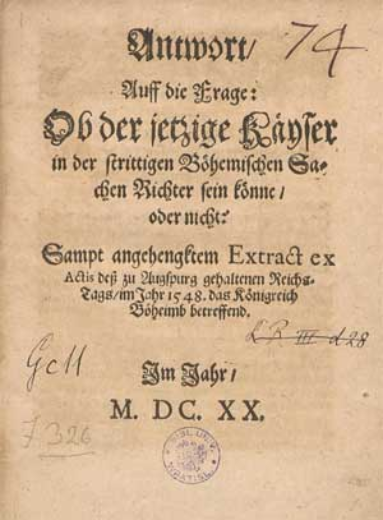 Antwort/
74
Auff die Frage:
Ob der jetzige Käyser
in der strittigen Böhemischen Sa-
chen Richter sein könne/
oder nicht?
Sampt angehengktem Extract ex
Actis deß zu Augspurg gehaltenen Reichs-
Tags/im Jahr 1548. das Königreich
Böheimb betreffend.
Im Jahr/
M. DC. XX.
7326